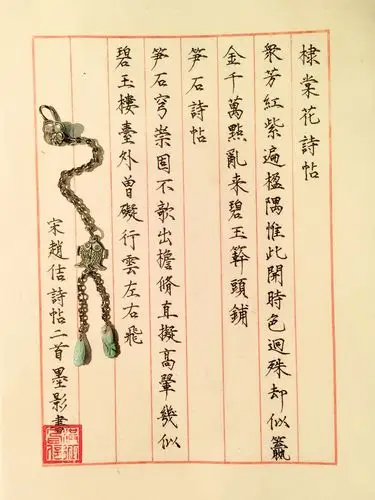 棣棠花詩帖
衆芳紅紫遍楹隅惟此開時色迥殊却似籯
金千萬點亂来碧玉簳頭鋪
笋石詩帖
笋石穹崇固不欹出檐脩直擬高翬幾似
碧玉樓臺外曾礙行雲左右飛
宋趙佶詩帖二首墨影書